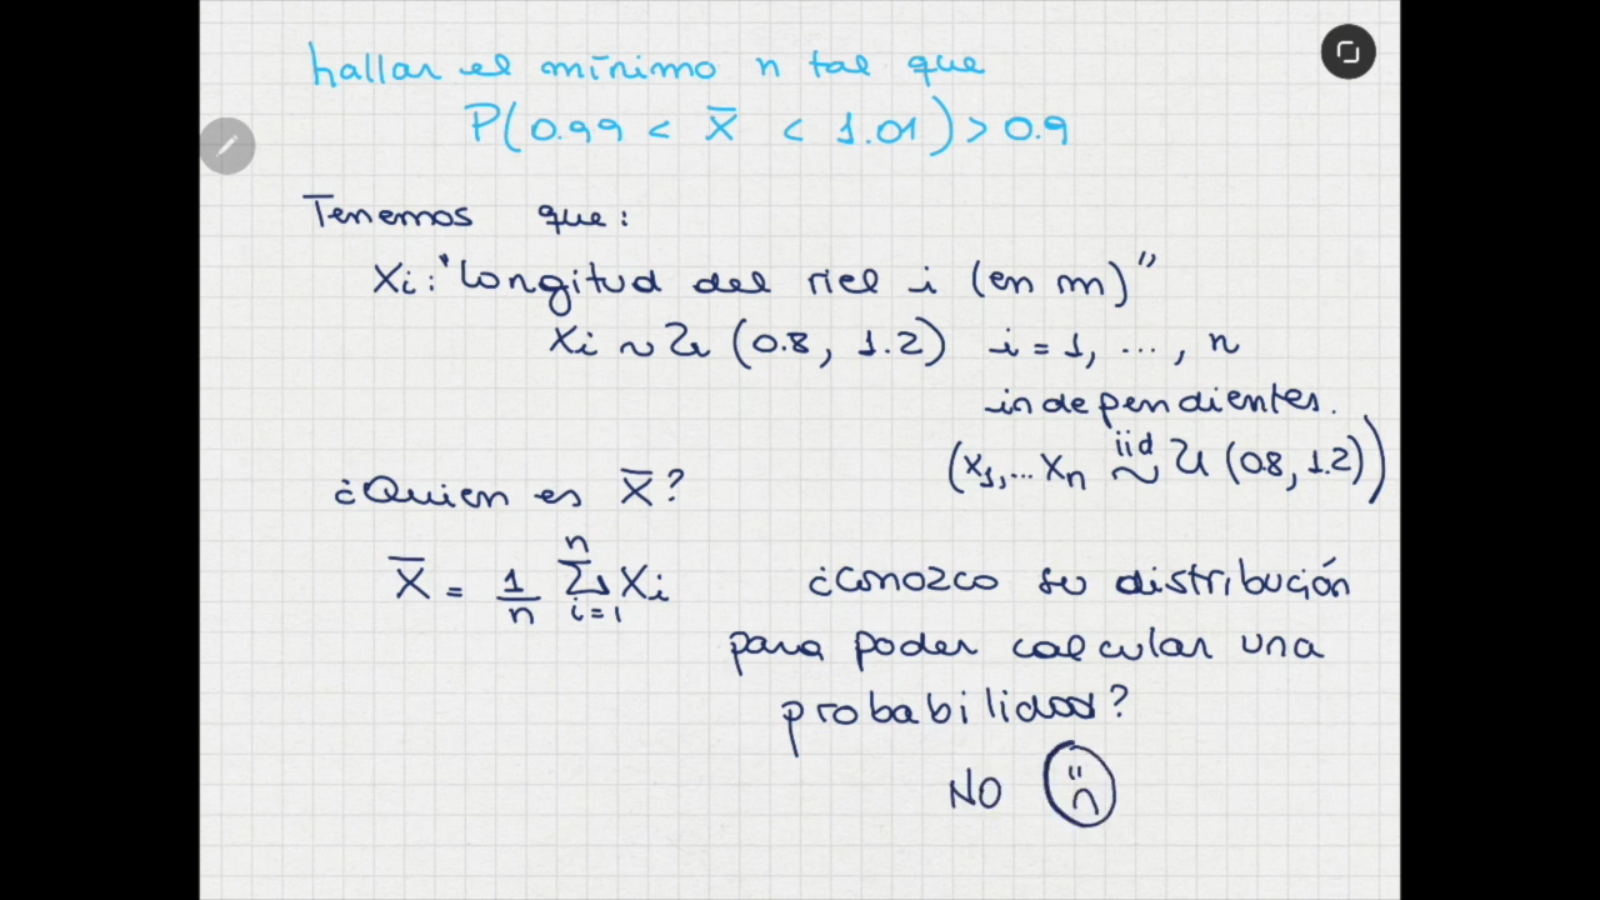 hallar el mínimo n tal que
P(0.99 < X̄ < 1.01) > 0.9
Tenemos que:
Xi: "longitud del riel i (en m)"
Xi ~ U (0.8, 1.2) i = 1, ..., n
independientes.
(X1, ... Xn iid ~ U (0.8, 1.2))
¿Quien es X̄?
X̄ = 1/n Σ i=1 n Xi
¿conozco su distribución
para poder calcular una
probabilidad?
NO